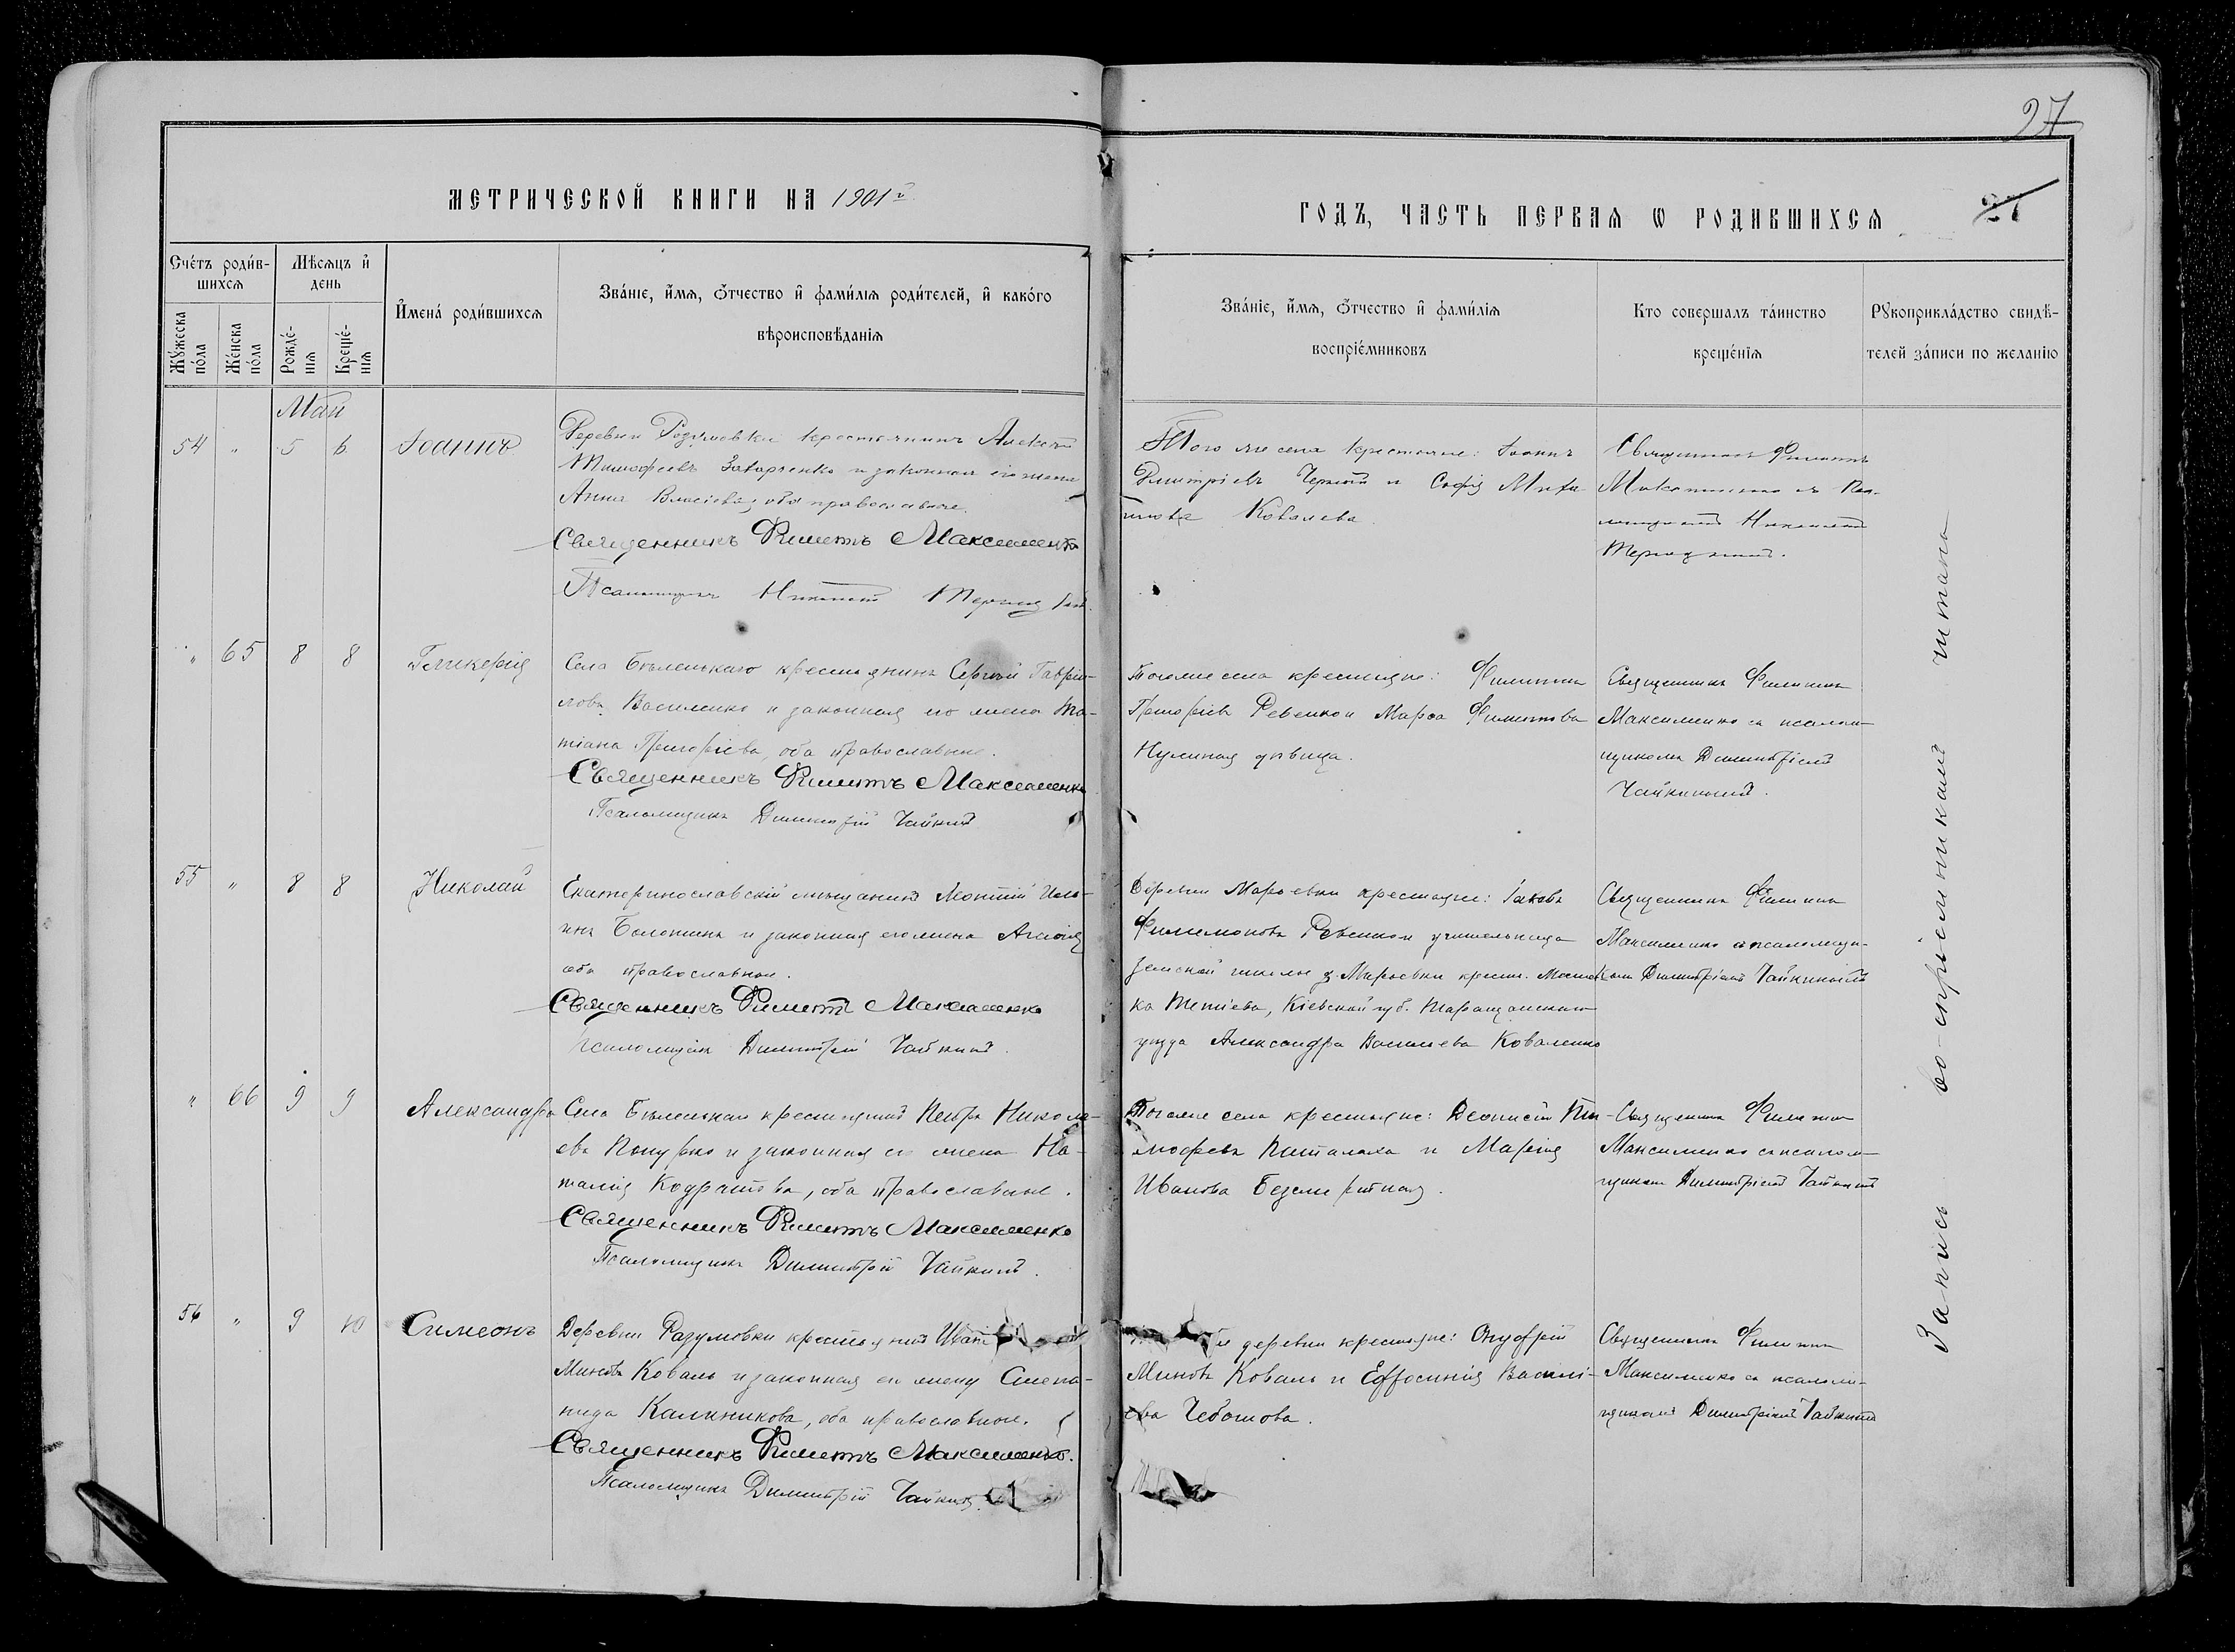 97
МЕТРИЧЕСКОЙ КНИГИ НА 1901й
ГОДЪ, ЧАСТЬ ПЕРВАЯ Ѡ РОДИВШИХСЯ
27
Счётъ роди́в-
шихсѧ
Мѣсѧцъ и҆
день
И҆мена́ роди́вшихсѧ
Зва́нїе, и҆́мѧ, ѻ҆́тчество и҆ фами́лїѧ роди́телей, и҆ како́го
вѣроисповѣ́данїѧ
Мꙋ́жеска
по́ла
Же́нска
по́ла
Рожде́-
нїѧ
Креще́-
нїѧ
Зва́нїе, и҆́мѧ, ѻ҆́тчество и҆ фами́лїѧ
воспрїе́мниковъ
Кто совершалъ та́инство
креще́нїѧ
Рꙋкоприкла́дство свидѣ́-
телей за́писи по желанїю
Май
54 " 5 6 Іоаннъ
Деревни Розумовки крестьянинъ Алексѣй
Тимофеевъ Захарченко и законная его жена
Анна Власіева, оба православные.
Священникъ Филиппъ Максименко
Псаломщикъ
Того же села крестьяне: Іоаннъ
Димитріевъ Черный и Софія Миха-
илова Ковалева.
Священникъ Филиппъ
Максименко съ Пса-
" 65 8 8 Гликерія
Села Бѣленькаго крестьянинъ Сергѣй Гаврiи-
ловъ Василенко и законная его жена Та-
тіана Григоріева, оба православные.
Священникъ Филиппъ Максименко
Псаломщикъ Димитрій Чайкинъ
Того же села крестьяне: Филиппъ
Григоріевъ Ревенко и Марѳа Филиппова
дѣвица.
Священникъ Филиппъ
Максименко съ псалом-
щикомъ Димитріемъ
Чайкинымъ.
55 " 8 8 Николай
Екатеринославскій мѣщанинъ Иль-
инъ и законная его жена
оба православные.
Священникъ Филиппъ Максименко
Псаломщикъ Димитрій Чайкинъ.
Деревни Марьевки крестьяне: Іаковъ
Филимоновъ Ревенко и учительница
земской школы д. Марьевки крест. Мѣстеч-
ка Тетіева, Кіевской губ. Таращанскаго
уѣзда Александра Васильева Коваленко
Священникъ Филиппъ
Максименко съ псаломщи-
комъ Димитріемъ Чайкинымъ
" 66 9 9 Александра
Села Бѣленькаго крестьянинъ Петръ Никола-
евъ и законная его жена На-
талія Кодратова, оба православные.
Священникъ Филиппъ Максименко
Псаломщикъ Димитрій Чайкинъ.
Того же села крестьяне: Діонисій Ти-
мофеевъ и Марія
Иванова
Священникъ Филиппъ
Максименко съ псалом-
щикомъ Димитріемъ Чайкинымъ
56 " 9 10 Симеонъ
Деревни Разумовки крестьянинъ Иванъ
Миновъ Коваль и законная его жена Степа-
нида Калиникова, оба православные.
Священникъ Филиппъ Максименко.
Псаломщикъ Димитрій Чайкинъ.
деревни крестьяне: Онуфрій
Миновъ Коваль и Евфросинія Василі-
ева Чеботова.
Священникъ Филиппъ
Максименко съ псаломщи-
щикомъ Димитріемъ Чайкинымъ
Запись воспріемникамъ читана